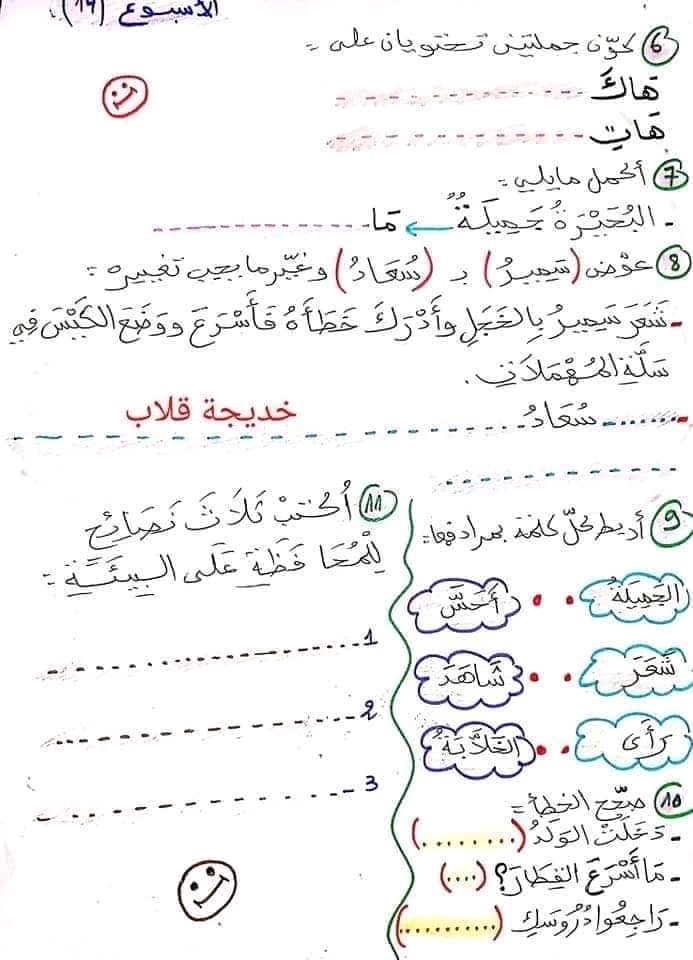 الأسبوع (19).
6 كوّن جملتين تحتويان على :
هَاكَ ..............
هَاتِ ..............
7 أكمل ما يلي :
- البُحَيْرَةُ جَمِيلَةٌ ← مَا ..............
8 عوّض (سَمِيرُ) بـ (سُعَادُ) وغيّر ما يجب تغييره :
- شَعَرَ سَمِيرُ بِالخَجَلِ وأَدْرَكَ خَطَأَهُ فَأَسْرَعَ ووَضَعَ الكَيْسَ فِي
سَلَّةِ المُهْمَلَاتِ.
خديجة قلاب
- ........ سُعَادُ ..............
..............
9 أربط كلّ كلمة بمرادفها :
الجَمِيلَةُ • • أَحَسَّ
شَعَرَ • • شَاهَدَ
رَأَى • • الخَلَّابَةُ
10 صحّح الخطأ :
- دَخَلَتْ الوَلَدُ (........)
- مَا أَسْرَعَ القِطَارَ؟ (....)
- رَاجِعُوا دُرُوسَكِ (..........)
11 أُكْتُبْ ثَلَاثَ نَصَائِحِ
لِلْمُحَافَظَةِ عَلَى البِيئَةِ :
1 ..............
2 ..............
3 ..............